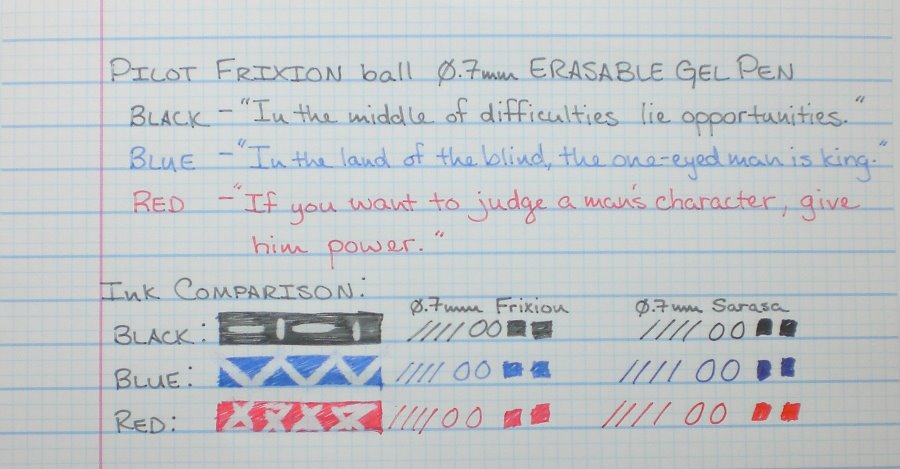 PILOT FRIXION ball 0.7mm ERASABLE GEL PEN
BLACK - "In the middle of difficulties lie opportunities."
BLUE - "In the land of the blind, the one-eyed man is king."
RED - "If you want to judge a man's character, give
him power."
INK COMPARISON:
0.7mm Frixion 0.7mm Sarasa
BLACK: //// OO //// OO
BLUE: //// OO //// OO
RED: //// OO //// OO